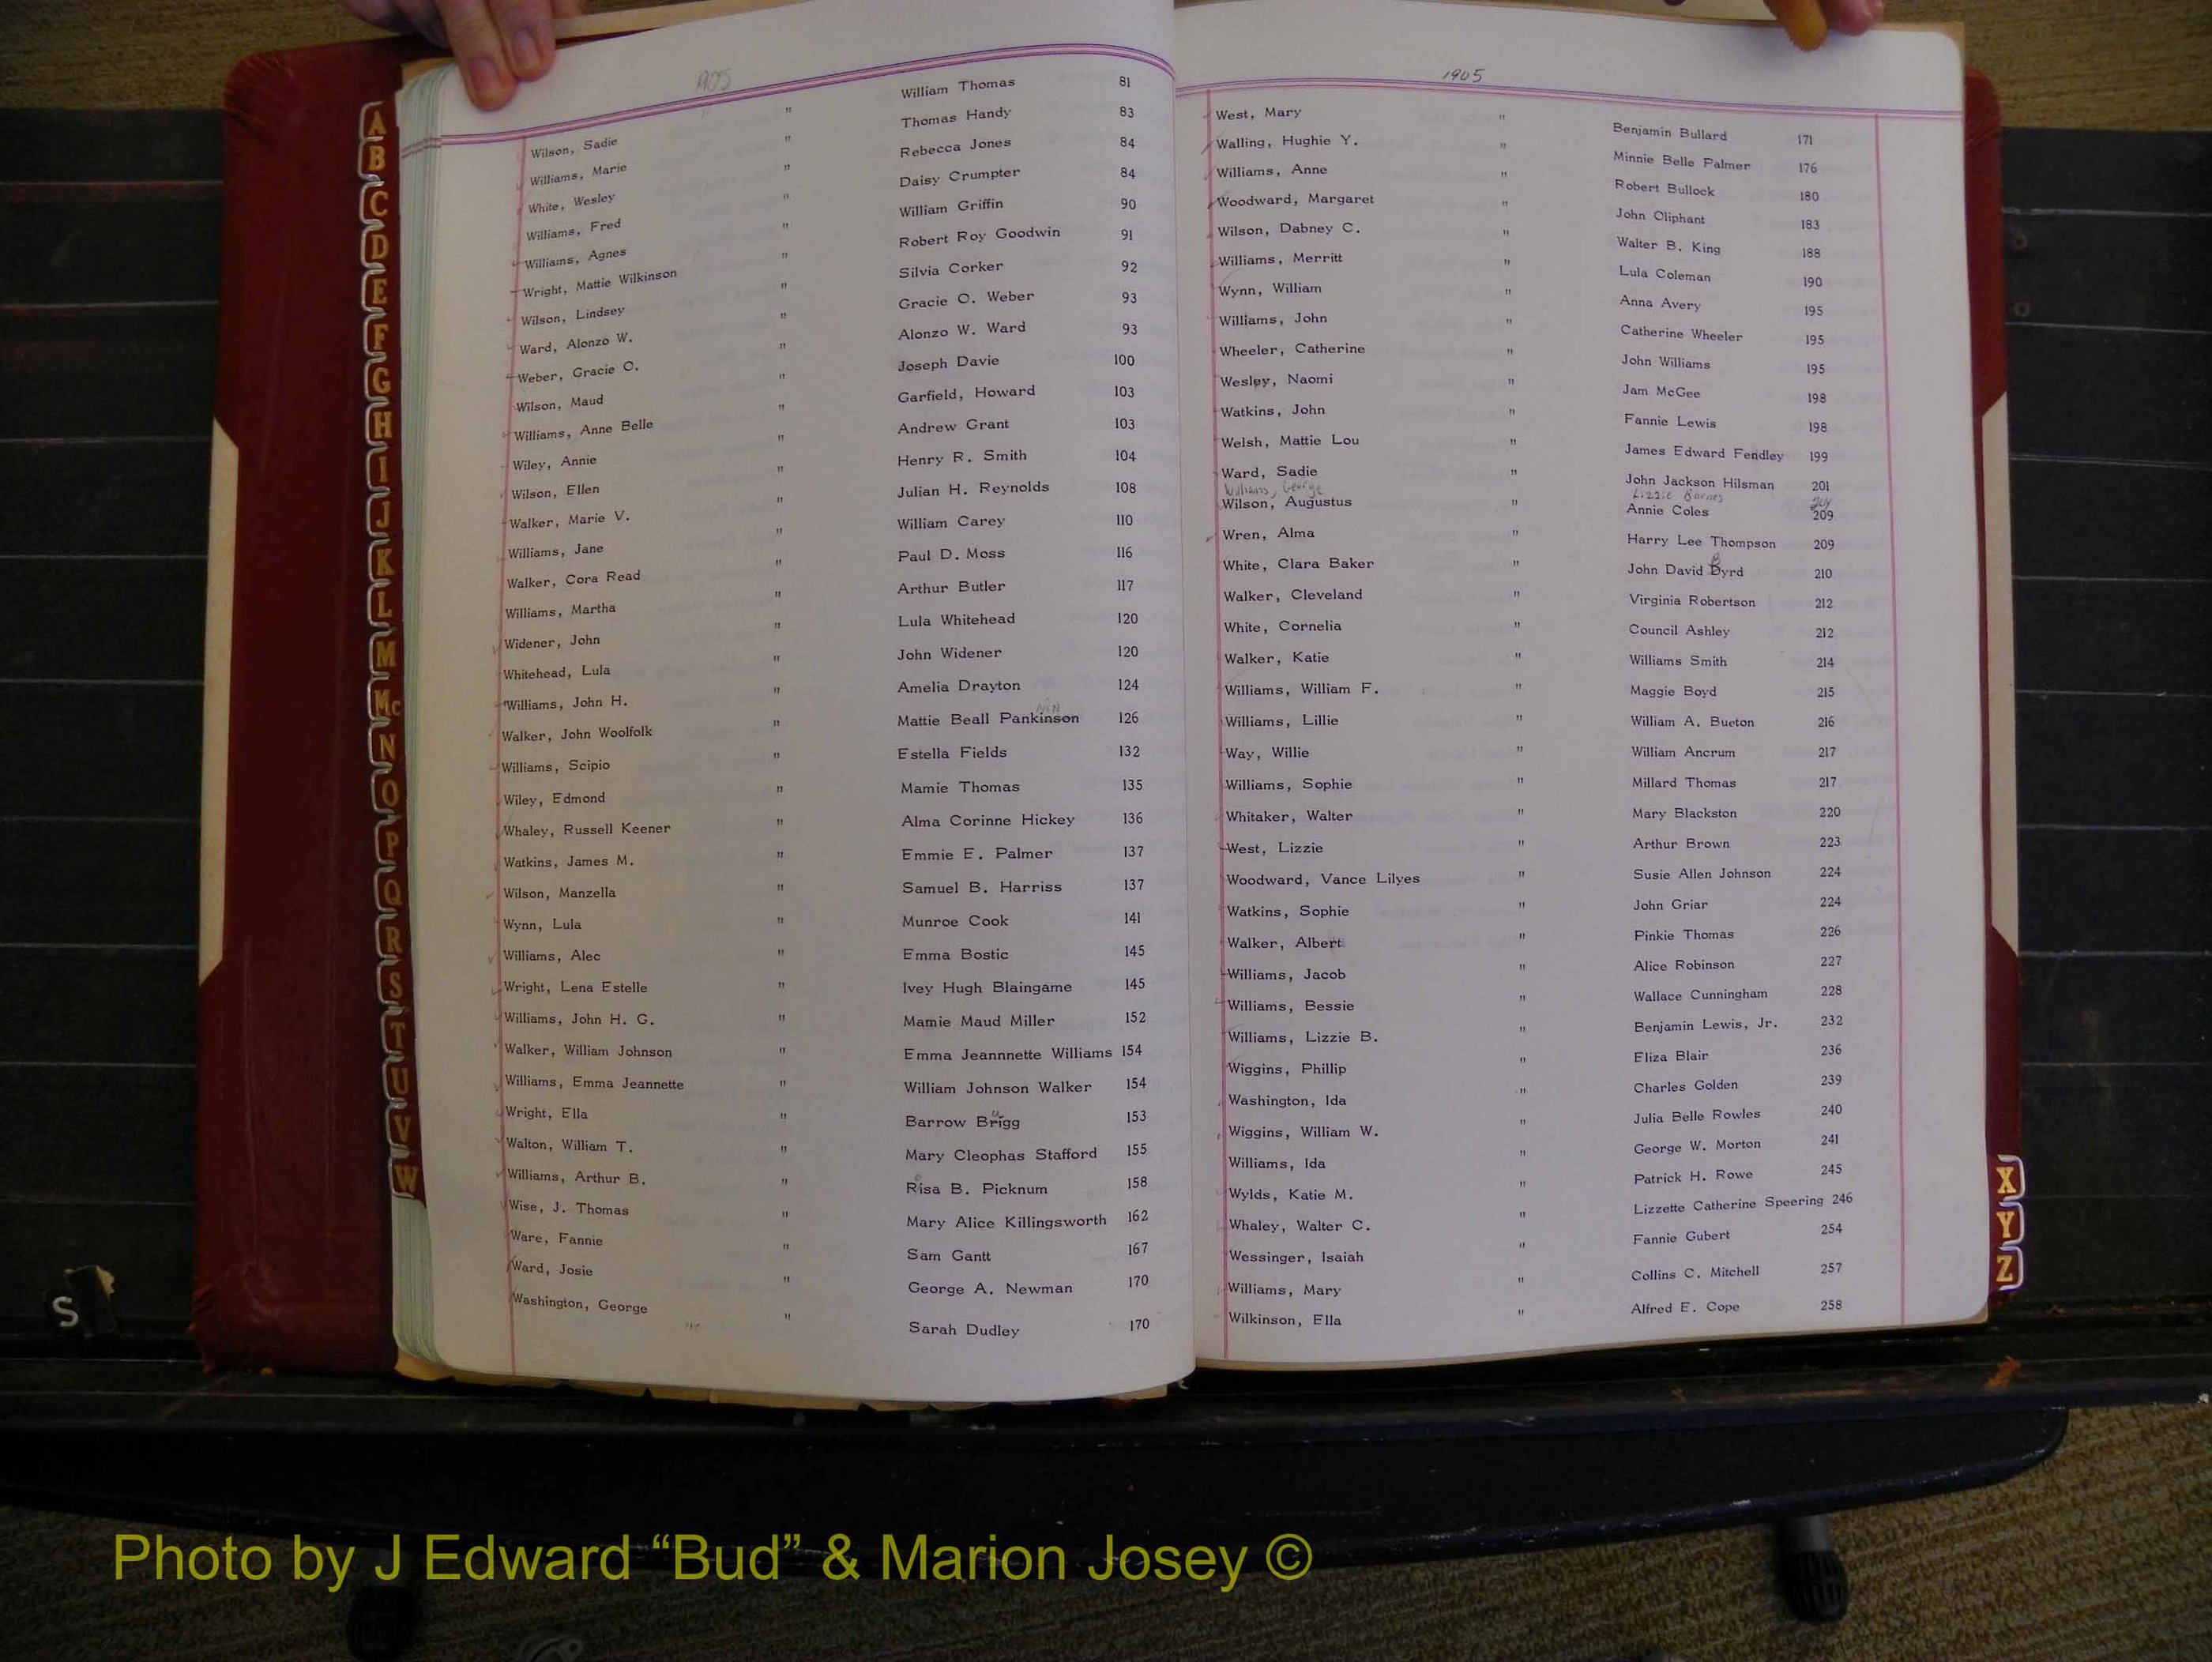 1905
Wilson, Sadie " William Thomas 81
Williams, Marie " Thomas Handy 83
White, Wesley " Rebecca Jones 84
Williams, Fred " Daisy Crumpter 84
Williams, Agnes " William Griffin 90
Wright, Mattie Wilkinson " Robert Roy Goodwin 91
Wilson, Lindsey " Silvia Corker 92
Ward, Alonzo W. " Gracie O. Weber 93
Weber, Gracie O. " Alonzo W. Ward 93
Wilson, Maud " Joseph Davie 100
Williams, Anne Belle " Garfield, Howard 103
Wiley, Annie " Andrew Grant 103
Wilson, Ellen " Henry R. Smith 104
Walker, Marie V. " Julian H. Reynolds 108
Williams, Jane " William Carey 110
Walker, Cora Read " Paul D. Moss 116
Williams, Martha " Arthur Butler 117
Widener, John " Lula Whitehead 120
Whitehead, Lula " John Widener 120
Williams, John H. " Amelia Drayton 124
Walker, John Woolfolk " Mattie Beall Pankinson 126
Williams, Scipio " Estella Fields 132
Wiley, Edmond " Mamie Thomas 135
Whaley, Russell Keener " Alma Corinne Hickey 136
Watkins, James M. " Emmie E. Palmer 137
Wilson, Manzella " Samuel B. Harriss 137
Wynn, Lula " Munroe Cook 141
Williams, Alec " Emma Bostic 145
Wright, Lena Estelle " Ivey Hugh Blaingame 145
Williams, John H. G. " Mamie Maud Miller 152
Walker, William Johnson " Emma Jeannnette Williams 154
Williams, Emma Jeannette " William Johnson Walker 154
Wright, Ella " Barrow Brigg 153
Walton, William T. " Mary Cleophas Stafford 155
Williams, Arthur B. " Risa B. Picknum 158
Wise, J. Thomas " Mary Alice Killingsworth 162
Ware, Fannie " Sam Gantt 167
Ward, Josie " George A. Newman 170
Washington, George " Sarah Dudley 170
1905
West, Mary " Benjamin Bullard 171
Walling, Hughie Y. " Minnie Belle Palmer 176
Williams, Anne " Robert Bullock 180
Woodward, Margaret " John Oliphant 183
Wilson, Dabney C. " Walter B. King 188
Williams, Merritt " Lula Coleman 190
Wynn, William " Anna Avery 195
Williams, John " Catherine Wheeler 195
Wheeler, Catherine " John Williams 195
Wesley, Naomi " Jam McGee 198
Watkins, John " Fannie Lewis 198
Welsh, Mattie Lou " James Edward Fendley 199
Ward, Sadie " John Jackson Hilsman 201
Williams, George Lizzie Barnes 204
Wilson, Augustus " Annie Coles 209
Wren, Alma " Harry Lee Thompson 209
White, Clara Baker " John David Byrd 210
Walker, Cleveland " Virginia Robertson 212
White, Cornelia " Council Ashley 212
Walker, Katie " Williams Smith 214
Williams, William F. " Maggie Boyd 215
Williams, Lillie " William A. Bueton 216
Way, Willie " William Ancrum 217
Williams, Sophie " Millard Thomas 217
Whitaker, Walter " Mary Blackston 220
West, Lizzie " Arthur Brown 223
Woodward, Vance Lilyes " Susie Allen Johnson 224
Watkins, Sophie " John Griar 224
Walker, Albert " Pinkie Thomas 226
Williams, Jacob " Alice Robinson 227
Williams, Bessie " Wallace Cunningham 228
Williams, Lizzie B. " Benjamin Lewis, Jr. 232
Wiggins, Phillip " Eliza Blair 236
Washington, Ida " Charles Golden 239
Wiggins, William W. " Julia Belle Rowles 240
Williams, Ida " George W. Morton 241
Wylds, Katie M. " Patrick H. Rowe 245
Whaley, Walter C. " Lizzette Catherine Speering 246
Wessinger, Isaiah " Fannie Gubert 254
Williams, Mary " Collins C. Mitchell 257
Wilkinson, Ella " Alfred E. Cope 258
A
B
C
D
E
F
G
H
I
J
K
L
M
Mc
N
O
P
Q
R
S
T
U
V
W
X
Y
Z
S
Photo by J Edward “Bud” & Marion Josey ©